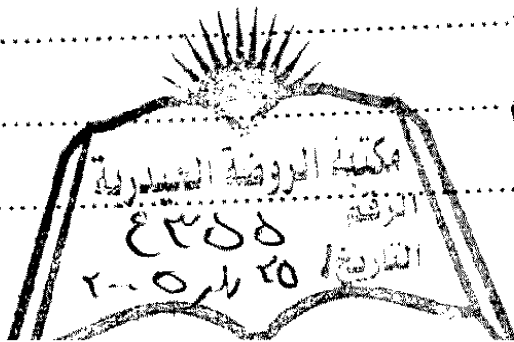 مكتبة الروضة الحيدرية
الرقم
٤٣٥٥
التاريخ/ ٢٥
٢٠٠٥